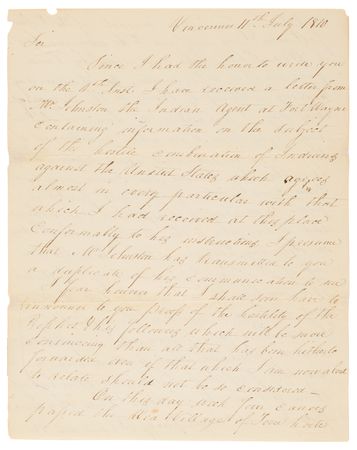 Vincennes 11th July 1810
Sir
Since I had the honor to write you
on the 4th Inst. I have received a letter from
Mr Johnston the Indian Agent at Fort Wayne
containing information on the subject
of the hostile combination of Indians
against the United States which agrees
almost in every particular with that
which I had received at this place
Conformably to his instructions I presume
that Mr Johnston has transmitted to you
a duplicate of his communication to me
I fear however that I shall soon have to
to you proof of the hostility of the
Prophet & his followers which will be more
convincing than all that has been hitherto
forwarded even if that which I am now about
to relate should not be so considered
On this day week four canoes
passed the Village of Terre houte